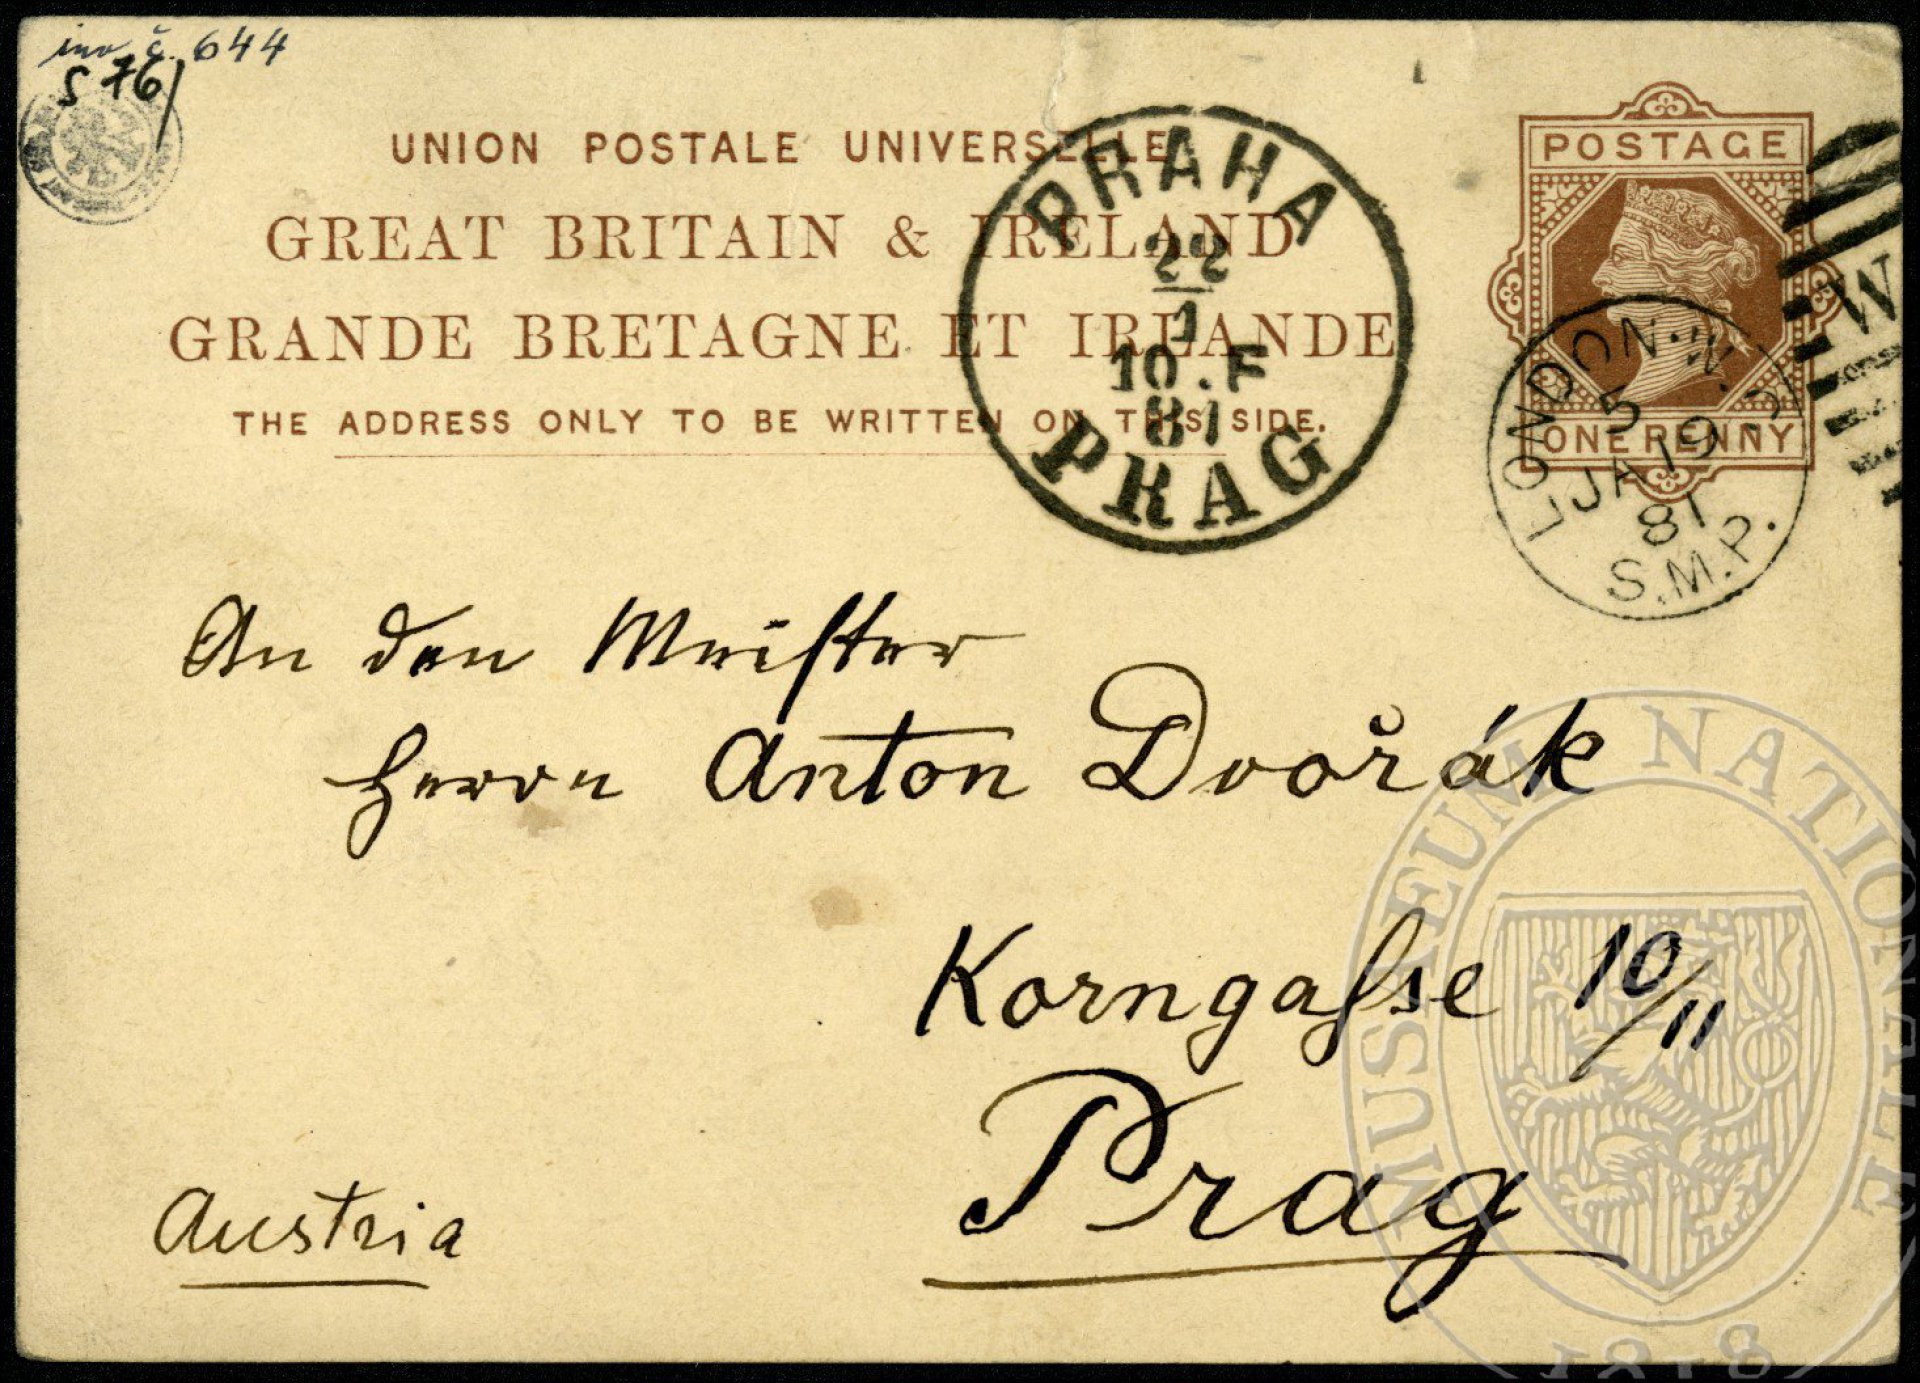 inv. č. 644
S 76/
UNION POSTALE UNIVERSELLE
GREAT BRITAIN & IRELAND
GRANDE BRETAGNE ET IRLANDE
THE ADDRESS ONLY TO BE WRITTEN ON THIS SIDE.
POSTAGE
ONE PENNY
PRAHA
22
1
10.F
81
PRAG
LONDON·W.
5
JA 19
81
S.M.P.
W
An den Meister
Herrn Anton Dvořák
Korngasse 10/II
Prag
Austria
MUSEUM NATIONALE
1818